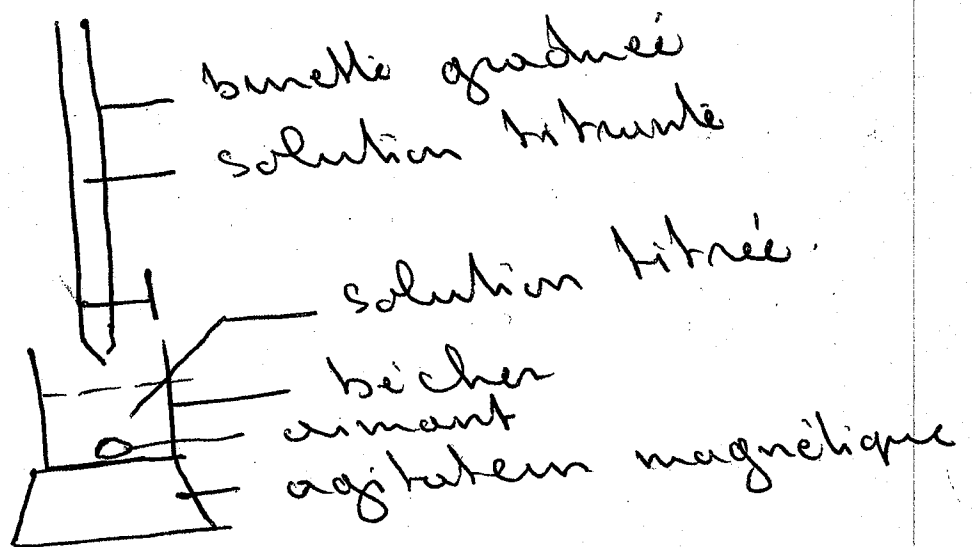 burette graduée
solution titrante
solution titrée.
bécher
aimant
agitateur magnétique